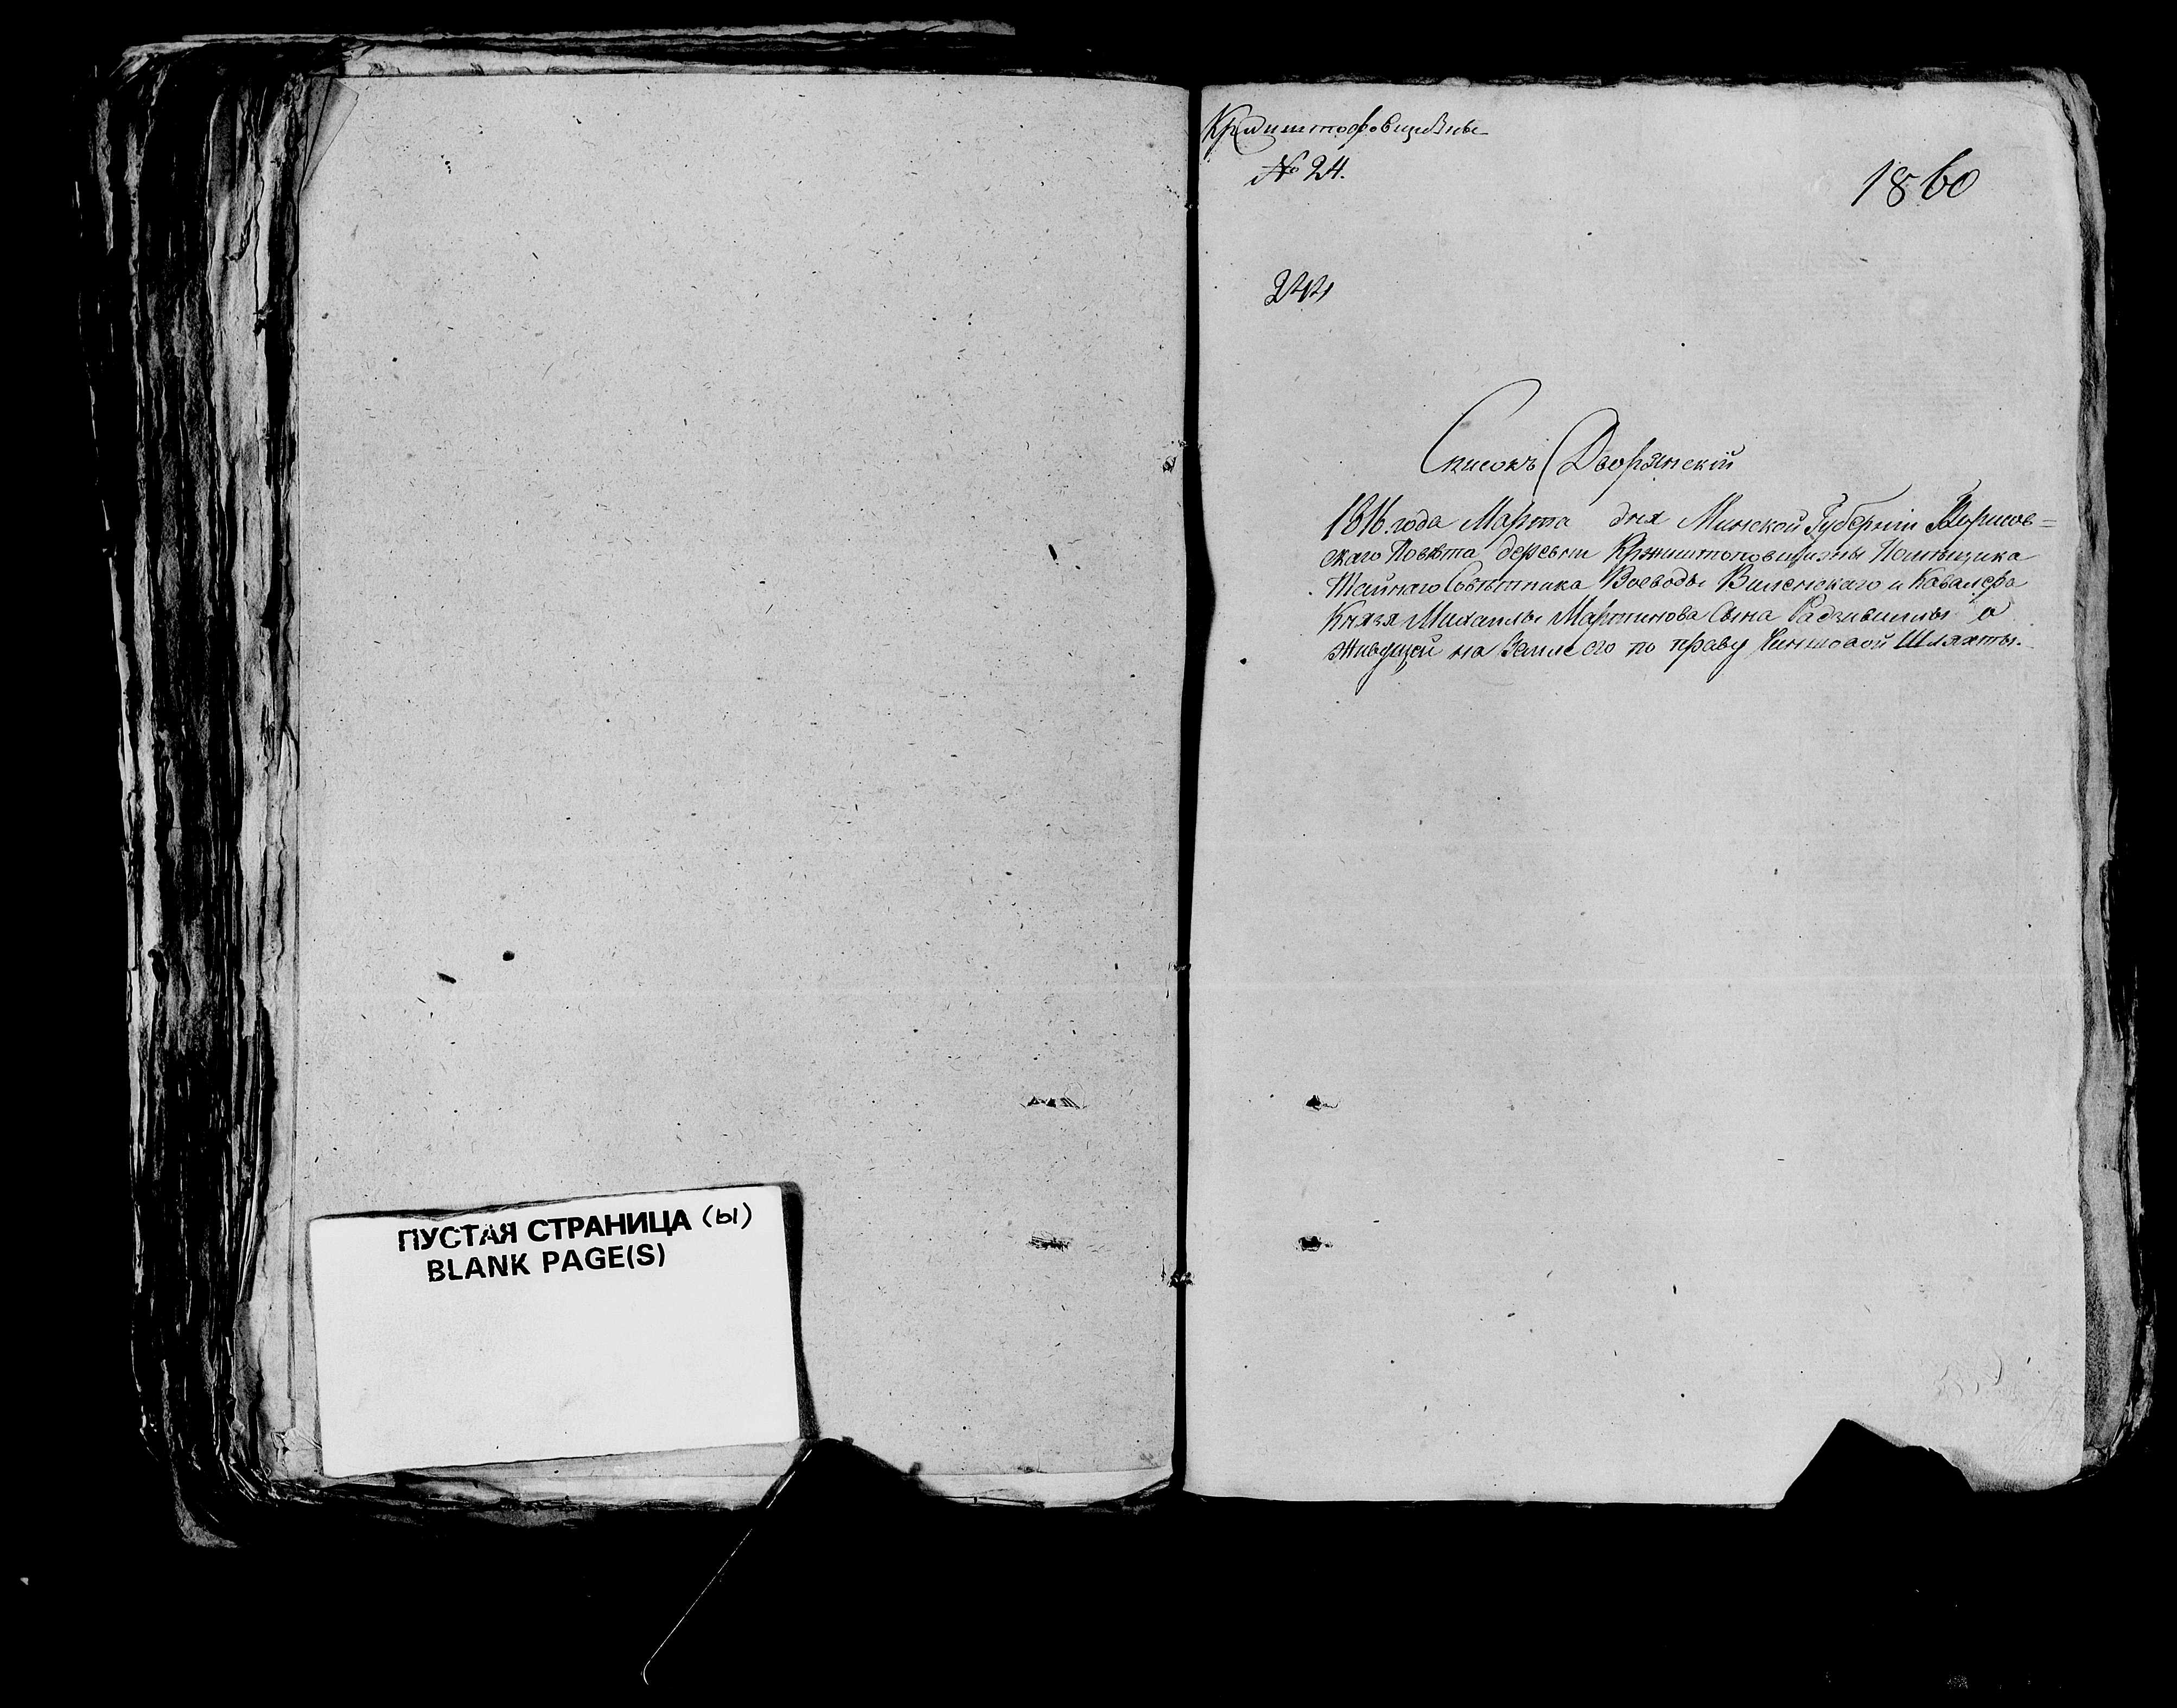 ПУСТАЯ СТРАНИЦА (ы)
BLANK PAGE(S)
Крыштофовщизны
№ 24.
1860
244
Списокъ Дворянский
1816. года Марта дня Минской Губерніи Борисов=
скаго Повѣта деревни Кржиштоповщизны Помѣщика
Тайнаго Совѣтника Воеводы Виленскаго и Кавалера
Князя Михаилы Мартинова Сына Радзивиллы о
живущей на Земле его по праву Чиншовой Шляхты.